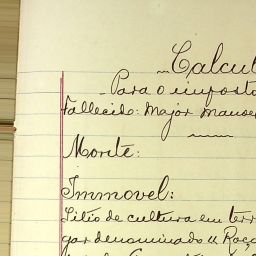 Calcul
Para o imposto
Fallecido: Major Manoel
Monte:
Immovel:
Sitio de cultura em terr
gar denominado "Roça